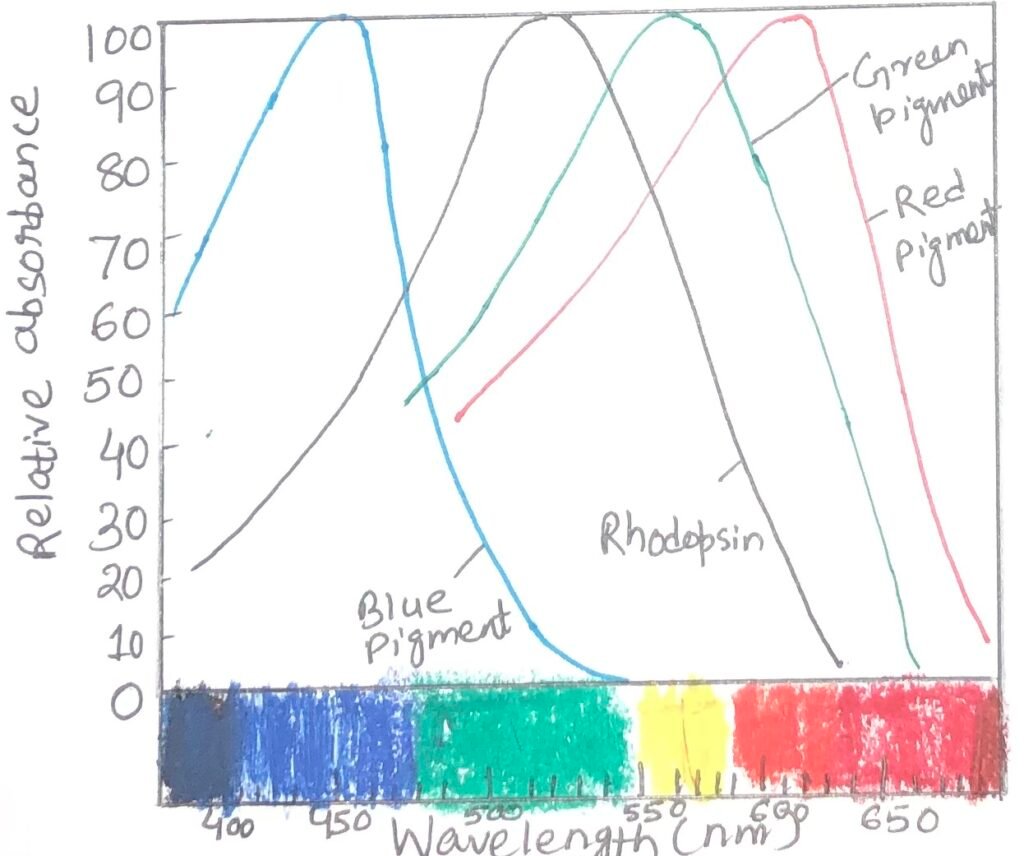 Relative absorbance
100
90
80
70
60
50
40
30
20
10
0
Green
pigment
Red
pigment
Rhodopsin
Blue
pigment
400 450 500 550 600 650
Wavelength (nm)